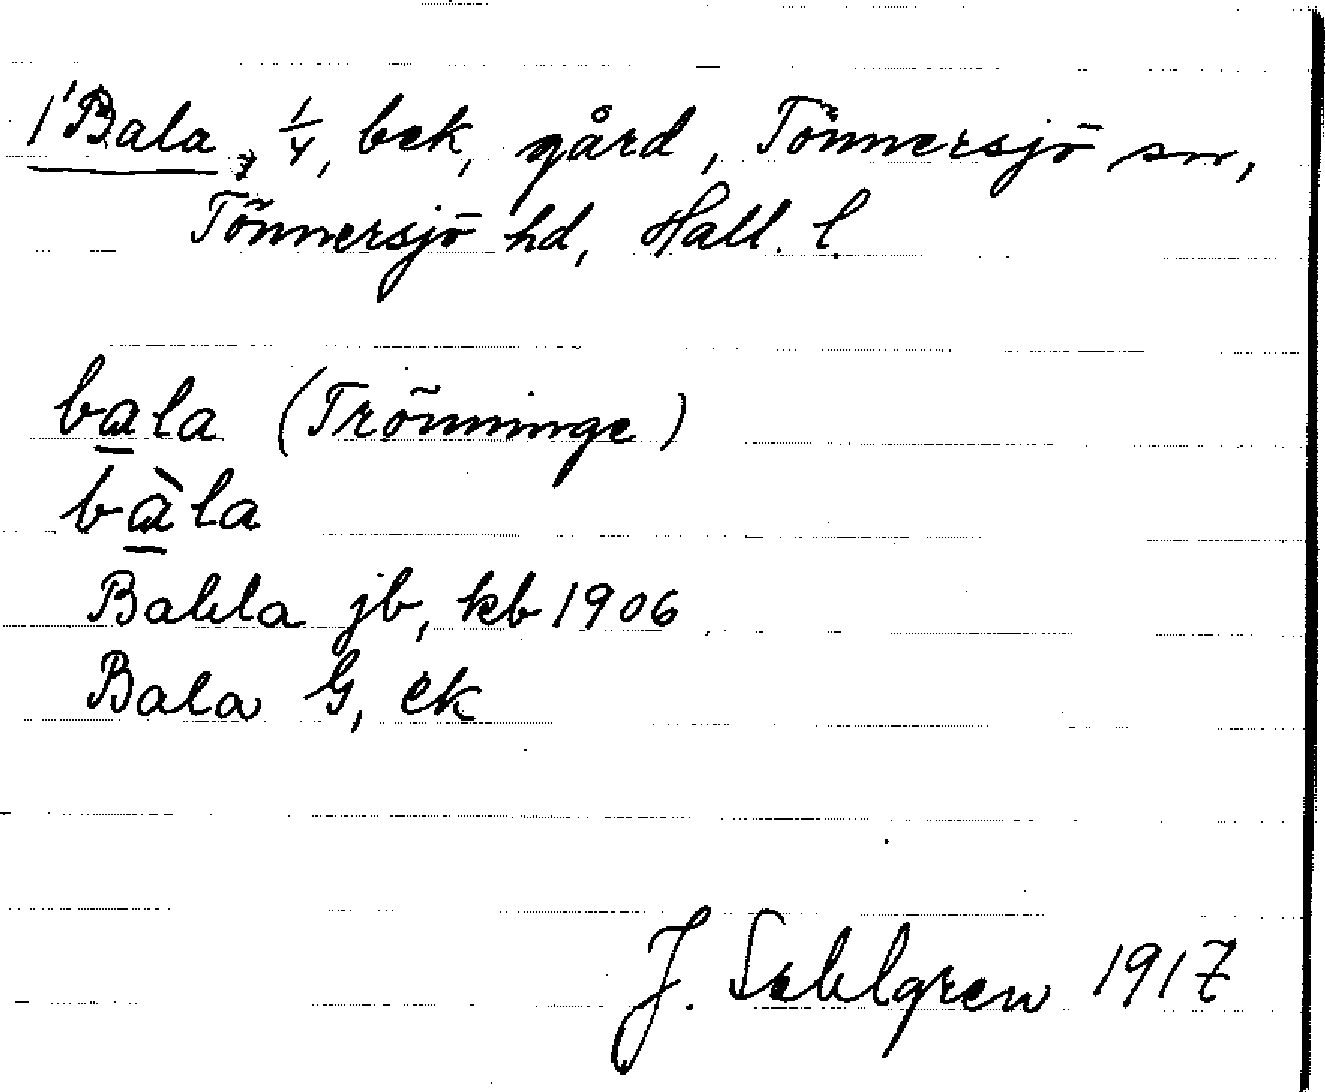 1 Bala, 1/4, bek, gård, Tönnersjö sn,
Tönnersjö hd, Hall. l.
ba̲la (Trönninge)
bà̲la
Bahla jb, kb 1906
Bala G, ek
J. Sahlgren 1917